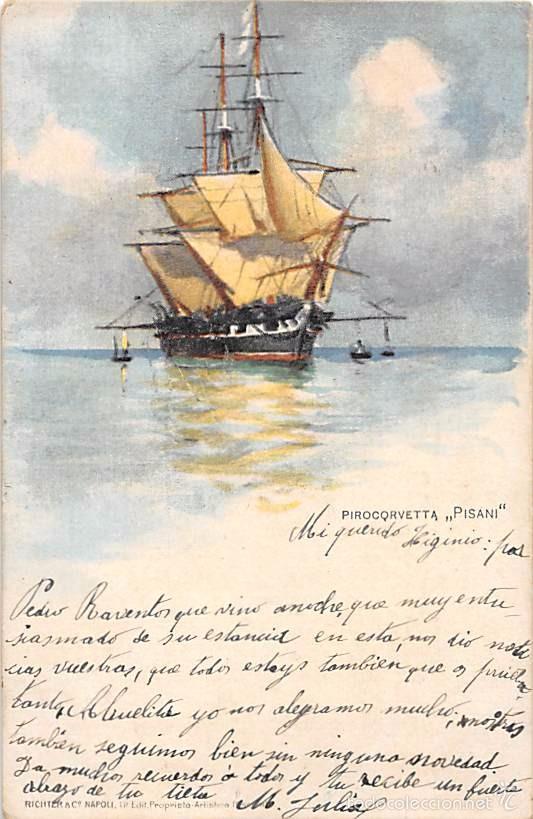 PIROCORVETTA „PISANI"
Mi querido Higinio: por
Pedro Raventos que vino anoche, que muy entu
siasmado de su estancia en esta, nos dio noti
cias vuestras, que todos estays tambien que os prueba
tanto, Abuelita yo nos alegramos mucho, nosotras
tambien seguimos bien sin ninguna novedad
Da muchos recuerdos á todos y tu recibe un fuerte
abrazo de tu tieta M. Julia
RICHTER & Co. NAPOLI, Tip. Edit. Proprietà-Artistica
todocoleccion.net